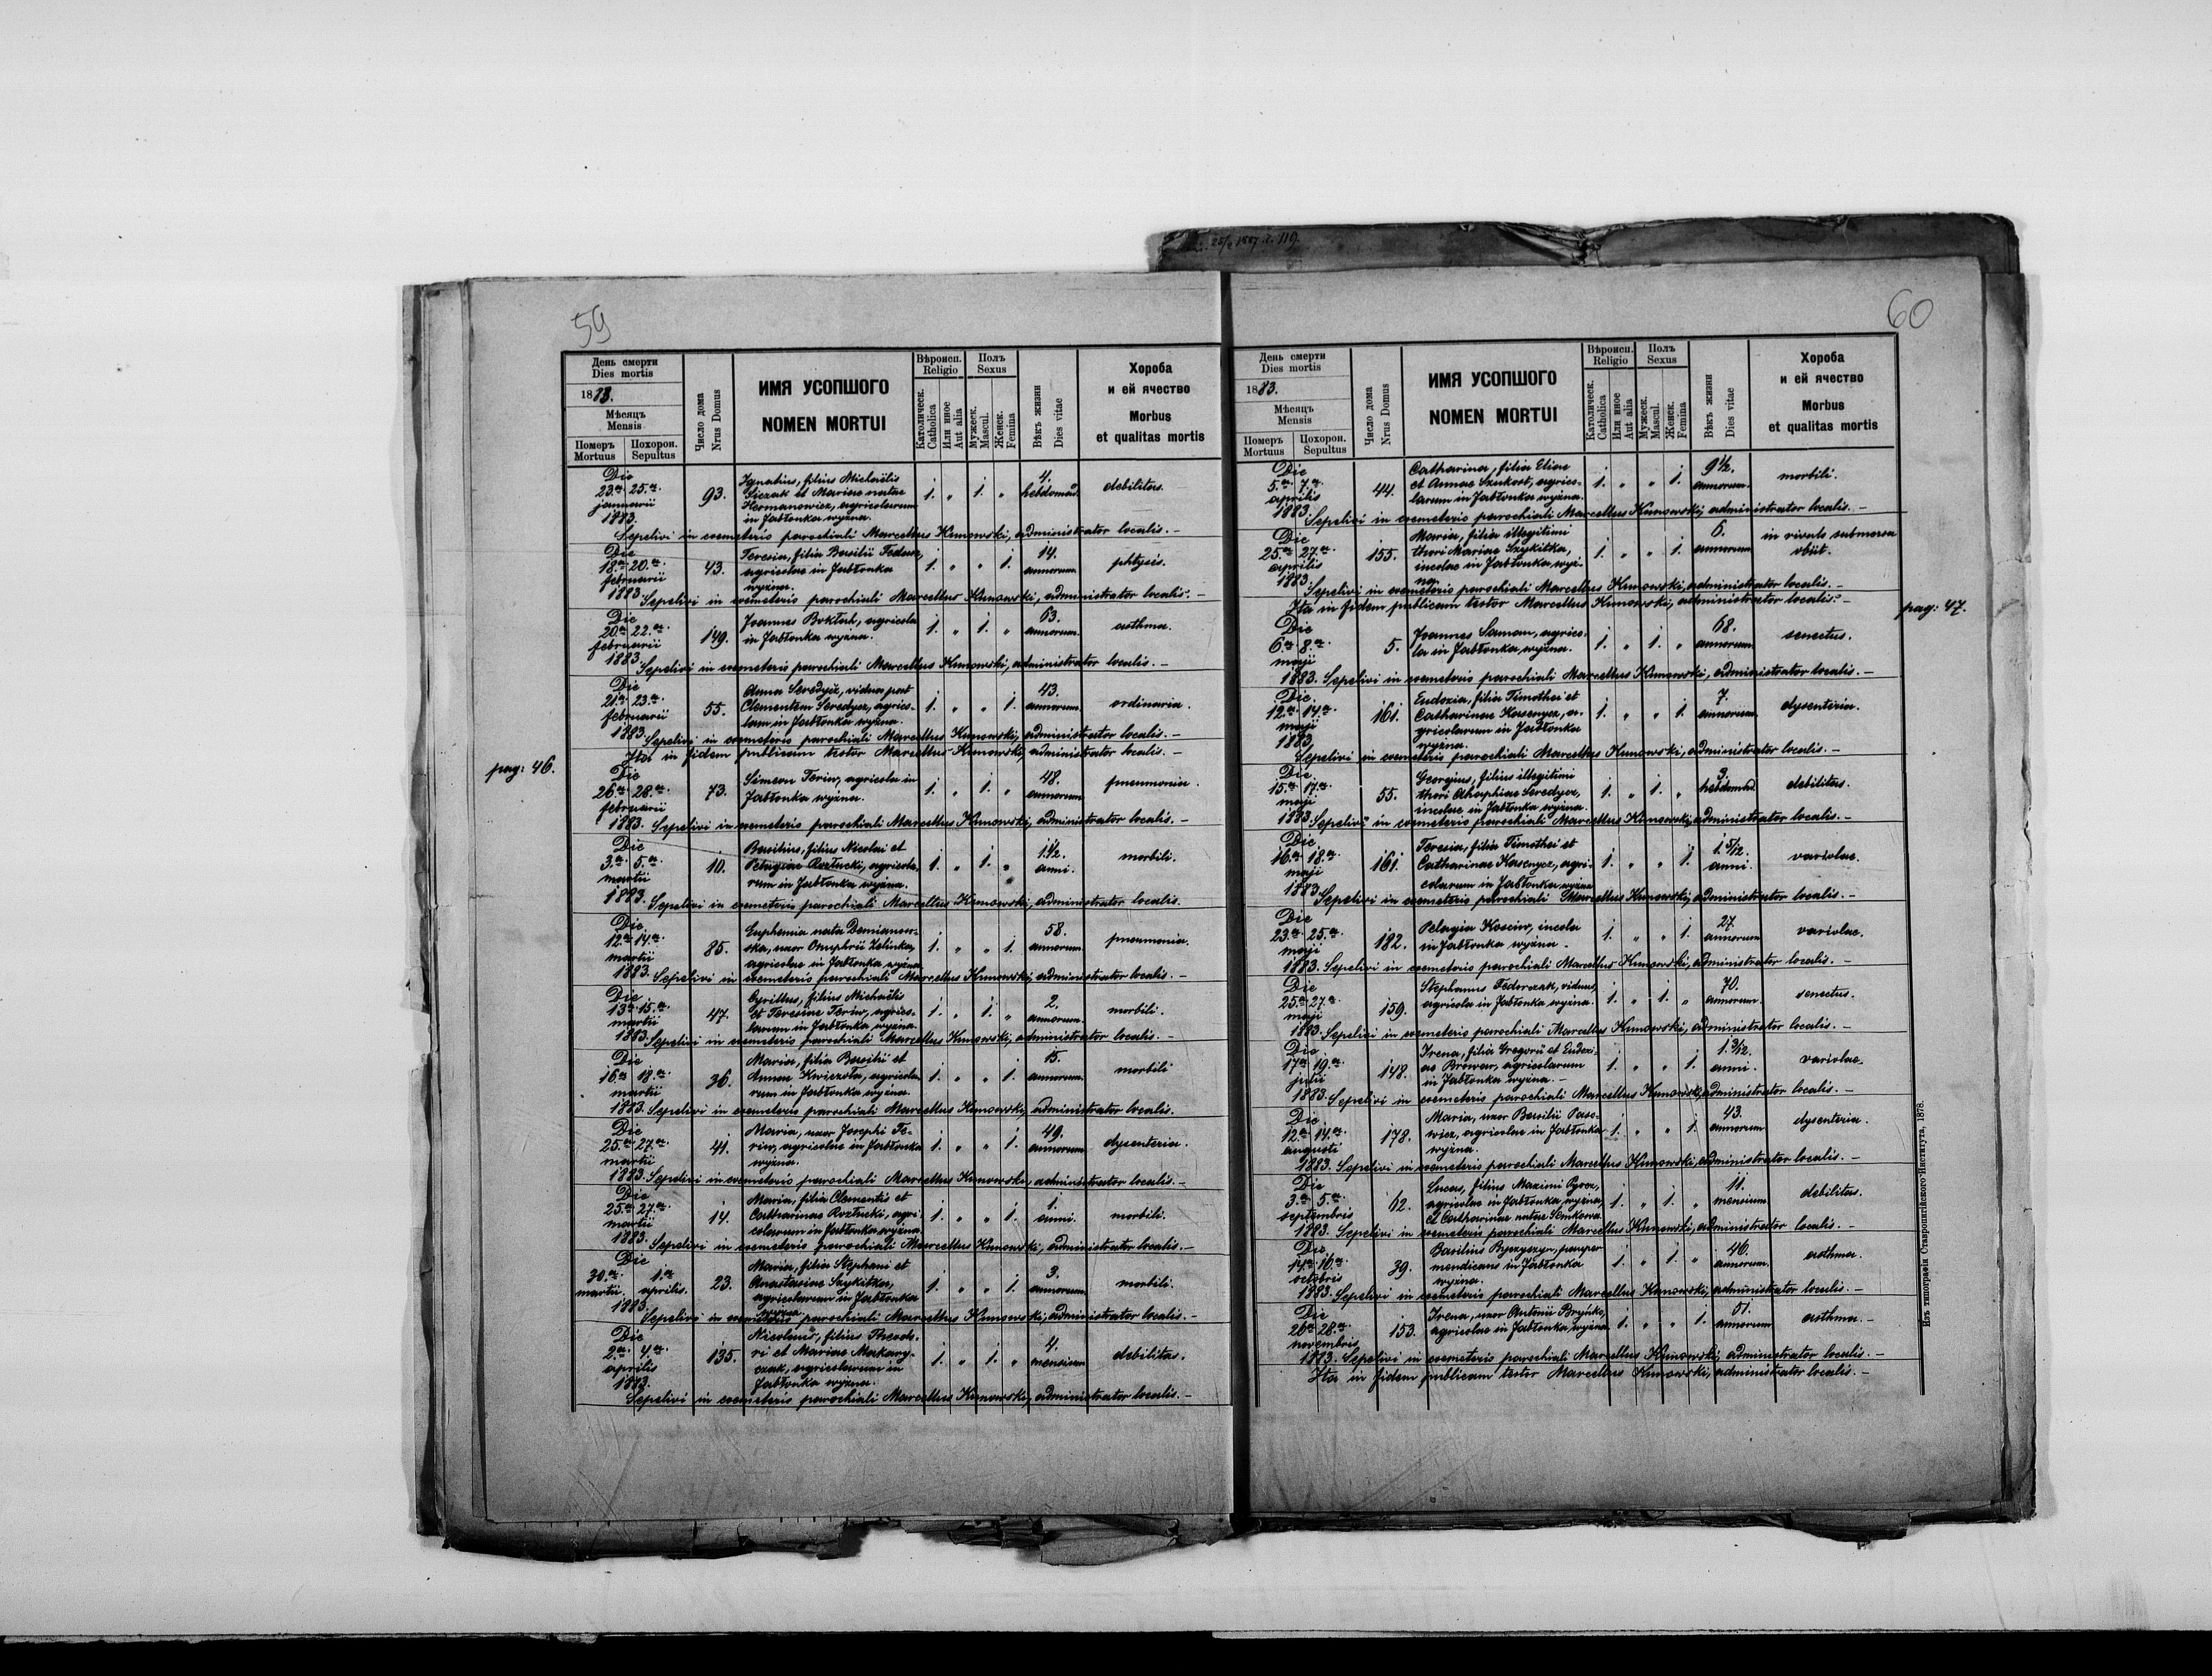 25/2 1887. г. 119.
59
День смерти
Dies mortis
1883.
Мѣсяцъ
Mensis
Померъ
Mortuus
Похорон.
Sepultus
Число дома
Nrus Domus
ИМЯ УСОПШОГО
NOMEN MORTUI
Вѣроисп.
Religio
Католическ.
Catholica
Или иное
Aut alia
Полъ
Sexus
Мужеск.
Mascul.
Женск.
Femina
Вѣкъ жизни
Dies vitae
Хороба
и ей ячество
Morbus
et qualitas mortis
Die 23a 25a januarii 1883. 93. Ignatius, filius Michaëlis
et Mariae natae
Hermanowicz, agricolarum
in Jabłonka wyżna. 1. „ 1. „ 4. hebdomad. debilitas.
Sepelivi in coemeterio parochiali Marcellus Kunowski, administrator localis. -
Die 18a 20a februarii 1883 43. Teresia, filia Basilii
agricolae in Jabłonka
wyżna. 1. „ „ 1. 14. annorum. phtysis.
Sepelivi in coemeterio parochiali Marcellus Kunowski, administrator localis. -
Die 20a 22a februarii 1883 149. Joannes agricola
in Jabłonka wyżna. 1. „ 1. „ 63. annorum. asthma.
Sepelivi in coemeterio parochiali Marcellus Kunowski, administrator localis. -
Die 21a 23a februarii 1883 55. Anna Seredycz, vidua post
Clementem Seredycz, agrico-
lam in Jabłonka wyżna. 1. „ „ 1. 43. annorum. ordinaria.
Sepelivi in coemeterio parochiali Marcellus Kunowski, administrator localis. -
Ita in fidem publicam testor Marcellus Kunowski, administrator localis. -
pag: 46.
Die 26a 28a februarii 1883. 73. Simeon Teriw, agricola in
Jabłonka wyżna. 1. „ 1. „ 48. annorum pneumonia.
Sepelivi in coemeterio parochiali Marcellus Kunowski, administrator localis. -
Die 3a 5a martii 1883. 10. Basilius, filius Nicolai et
Pelagiae Rozłucki, agricola-
rum in Jabłonka wyżna. 1. „ 1. „ 1 1/2. anni. morbili.
Sepelivi in coemeterio parochiali Marcellus Kunowski, administrator localis.
Die 12a 14a martii 1883. 85. Euphemia nata Demianow-
ska, uxor Onuphrii Zelinka,
agricolae in Jabłonka wyżna 1. „ „ 1. 58. annorum. pneumonia.
Sepelivi in coemeterio parochiali Marcellus Kunowski, administrator localis. -
Die 13a 15a martii 1883. 47. Cyrillus, filius Michaëlis
et Teresiae Teriw, agrico-
larum in Jabłonka wyżna. 1. „ 1. „ 2. annorum. morbili.
Sepelivi in coemeterio parochiali Marcellus Kunowski, administrator localis. -
Die 16a 18a martii 1883. 36. Maria, filia Basilii et
Annae Kwiczoła, agricola-
rum in Jabłonka wyżna. 1. „ „ 1. 15. annorum. morbili
Sepelivi in coemeterio parochiali Marcellus Kunowski, administrator localis.
Die 25a 27a martii 1883. 41. Maria, uxor Josephi Te-
riw, agricolae in Jabłonka
wyżna. 1. „ „ 1. 49. annorum. dysenteria.
Sepelivi in coemeterio parochiali Marcellus Kunowski, administrator localis. -
Die 25a 27a martii 1883. 14. Maria, filia Clementis et
Catharinae Rozłucki, agri-
colarum in Jabłonka wyżna. 1. „ „ 1. 1. anni. morbili.
Sepelivi in coemeterio parochiali Marcellus Kunowski, administrator localis. -
Die 30a martii 1a aprilis. 1883. 23. Maria, filia Stephani et
Anastasiae Szykitka,
agricolarum in Jabłonka
wyżna. 1. „ „ 1. 3. annorum. morbili.
Sepelivi in coemeterio parochiali Marcellus Kunowski, administrator localis. -
Die 2a 4a aprilis 1883. 135. Nicolaus, filius Theodo-
ri et Mariae Makary-
czak, agricolarum in
Jabłonka wyżna. 1. „ 1. „ 4. mensium debilitas.
Sepelivi in coemeterio parochiali Marcellus Kunowski, administrator localis. -
60
День смерти
Dies mortis
1883.
Мѣсяцъ
Mensis
Померъ
Mortuus
Похорон.
Sepultus
Число дома
Nrus Domus
ИМЯ УСОПШОГО
NOMEN MORTUI
Вѣроисп.
Religio
Католическ.
Catholica
Или иное
Aut alia
Полъ
Sexus
Мужеск.
Mascul.
Женск.
Femina
Вѣкъ жизни
Dies vitae
Хороба
и ей ячество
Morbus
et qualitas mortis
Die 5a 7a aprilis 1883. 44. Catharina, filia Eliae
et Annae agrico-
larum in Jabłonka wyżna. 1. „ „ 1. 9 1/2. annorum. morbili.
Sepelivi in coemeterio parochiali Marcellus Kunowski, administrator localis. -
Die 25a 27a aprilis 1883 155. Maria, filia illegitimi
thori Mariae Szykitka,
incolae in Jabłonka wyż-
na. 1. „ „ 1. 6. annorum in rivulo submersa
obiit.
Sepelivi in coemeterio parochiali Marcellus Kunowski, administrator localis. -
Ita in fidem publicam testor Marcellus Kunowski, administrator localis. -
pag: 47.
Die 6a 8a maji 1883. 5. Joannes Saman, agrico-
la in Jabłonka wyżna. 1. „ 1. „ 68. annorum senectus.
Sepelivi in coemeterio parochiali Marcellus Kunowski, administrator localis. -
Die 12a 14a maji 1883 161. Eudoxia, filia Timothei et
Catharinae Kosenycz, a-
gricolarum in Jabłonka
wyżna. 1. „ „ 1. 7. annorum. dysenteria.
Sepelivi in coemeterio parochiali Marcellus Kunowski, administrator localis. -
Die 15a 17a maji 1883 55. Georgius, filius illegitimi
thori Seredycz,
incolae in Jabłonka wyżna. 1. „ 1. „ 3. hebdomad debilitas.
Sepelivi in coemeterio parochiali Marcellus Kunowski, administrator localis. -
Die 16a 18a maji 1883 161. Teresia, filia Timothei et
Catharinae Kosenycz, agri-
colarum in Jabłonka wyżna 1. „ „ 1. 1. 5/12. anni. variolae.
Sepelivi in coemeterio parochiali Marcellus Kunowski, administrator localis. -
Die 23a 25a maji 1883. 182. Pelagia Kosciw, incola
in Jabłonka wyżna. 1. „ „ 1. 27. annorum variolae.
Sepelivi in coemeterio parochiali Marcellus Kunowski, administrator localis. -
Die 25a 27a maji 1883. 159. Stephanus Fedorczak, viduus,
agricola in Jabłonka wyżna. 1. „ 1. „ 70. annorum. senectus.
Sepelivi in coemeterio parochiali Marcellus Kunowski, administrator localis. -
Die 17a 19a julii 1883. 148. Irena, filia Gregorii et Eudoxi-
ae Browar, agricolarum
in Jabłonka wyżna. - 1. „ „ 1. 1. 3/12. anni. variolae.
Sepelivi in coemeterio parochiali Marcellus Kunowski, administrator localis. -
Die 12a 14a augusti 1883. 178. Maria, uxor Basilii Paso-
wicz, agricolae in Jabłonka
wyżna. 1. „ „ 1. 43. annorum dysenteria.
Sepelivi in coemeterio parochiali Marcellus Kunowski, administrator localis. -
Die 3a 5a septembris 1883. 62. Lucas, filius Maximi Pyroz,
agricolae in Jabłonka wyżna,
et Catharinae natae 1. „ 1. „ 11. mensium debilitas.
Sepelivi in coemeterio parochiali Marcellus Kunowski, administrator localis. -
Die 14a 16a octobris 1883. 39. Basilius pauper
mendicans in Jabłonka
wyżna. 1. „ 1. „ 46. annorum. asthma.
Sepelivi in coemeterio parochiali Marcellus Kunowski, administrator localis. -
Die 26a 28a novembris 1883. 153. Irena, uxor Antonii
agricolae in Jabłonka wyżna. 1. „ „ 1. 61. annorum asthma. -
Sepelivi in coemeterio parochiali Marcellus Kunowski, administrator localis. -
Ita in fidem publicam testor Marcellus Kunowski, administrator localis. -
Изъ типографіи Ставропигійского Института, 1878.